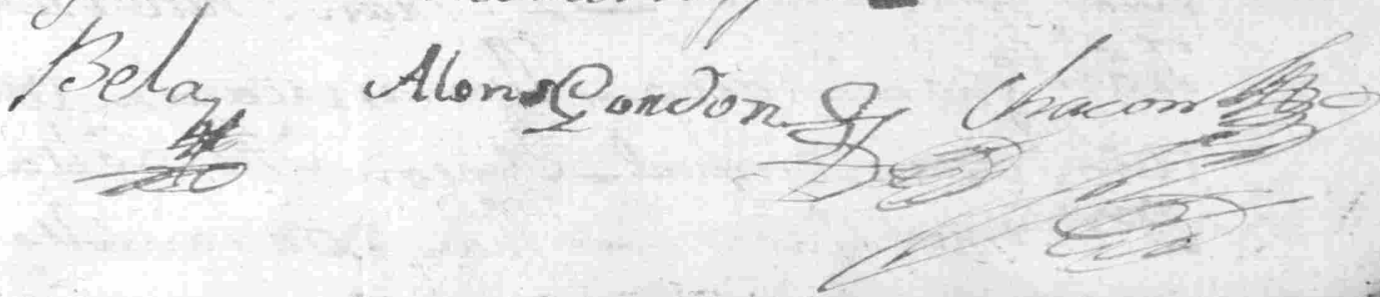 Bela Alonso Gondon Chacon